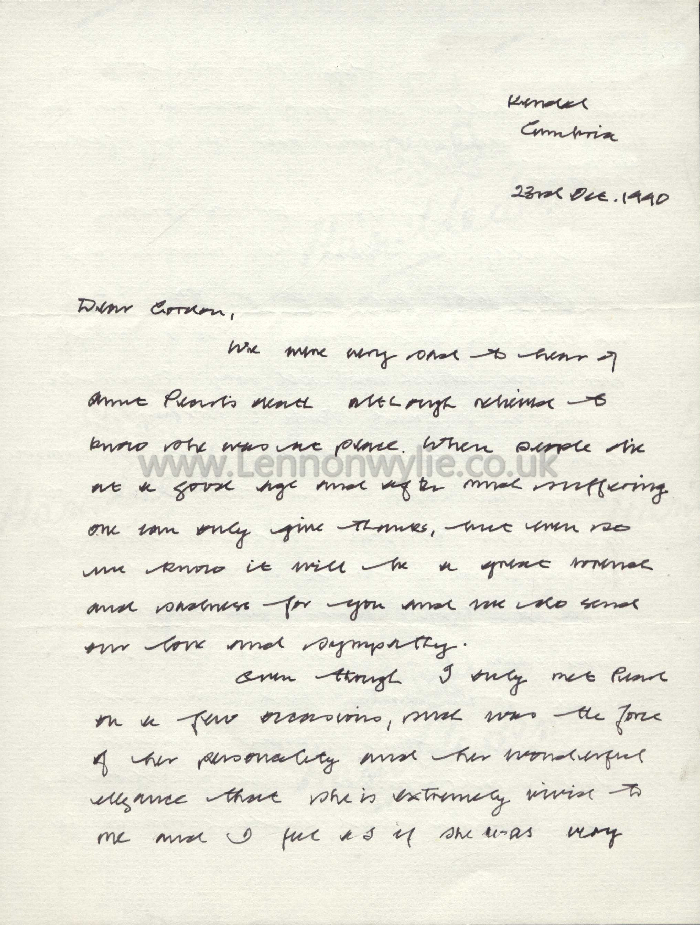 Kendal
Cumbria
23rd Dec. 1990
Dear Gordon,
We were very sad to hear of
Aunt Pearl's death although relieved to
know she was at peace. When people die
www.Lennonwylie.co.uk
at a good age and after much suffering
one can only give thanks, but even so
we know it will be a great wrench
and sadness for you and we do send
our love and sympathy.
Even though I only met Pearl
on a few occasions, such was the force
of her personality and her wonderful
elegance that she is extremely vivid to
me and I feel as if she was very